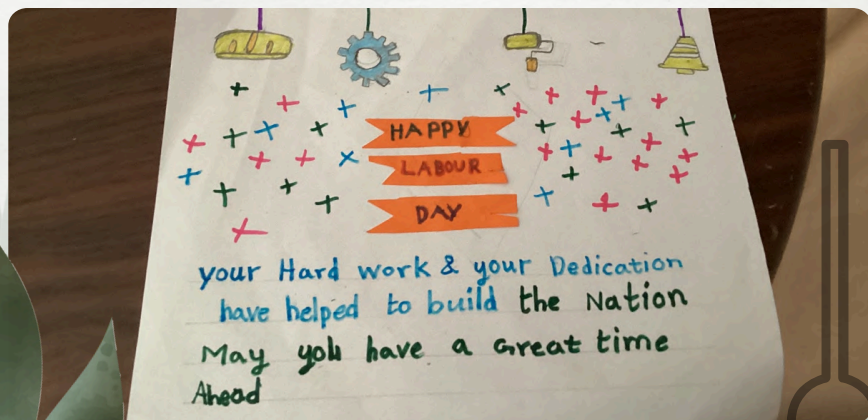 HAPPY
LABOUR
DAY
your Hard work & your Dedication
have helped to build the Nation
May you have a Great time
Ahead